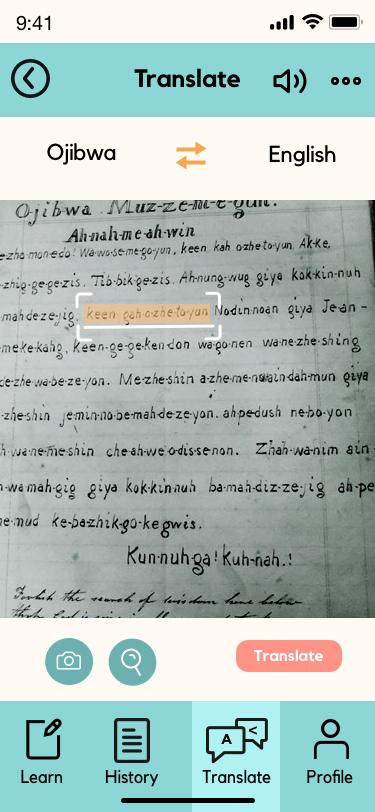 9:41
Translate
Ojibwa
English
Ojibwa Muz-ze-m-e-gun.
Ah-nah-me-ah-win
e-zha-mon-e-do! Wa-wo-se-me-go-yun, keen kah o-zhe-to-yun Ak-ke,
-zhig-ge-ge-zis. Tib-bik-ge-zis. Ah-nung-wug giya kok-kin-nuh
mah-de-ze-jig, keen gah-o-zhe-to-yun Nodin-noan giya Je-an-
meke-kahg, keen-ge-ge-ken-don wa-go-nen wa-ne-zhe-shing
de-zhe-wa-be-ze-yon. Me-zhe-shin a-zhe-me-no-ain-dah-mun giya
-zhe-shin je-min-no-be-mah-de-ze-yon. ah-pe-dush ne-bo-yon
h-wa-ne-me-shin che-ah-we-o-dis-se-non. Zhah-wa-nim ain
n-wa-mah-gig giya kok-kin-nuh ba-mah-diz-ze-jig ah-pe
ne-mud ke-ba-zhik-go-ke-gwis.
Kun-nuh-ga! Kuh-nah.!
Foolish the search of wisdom here below
Translate
A
<
Learn
History
Translate
Profile